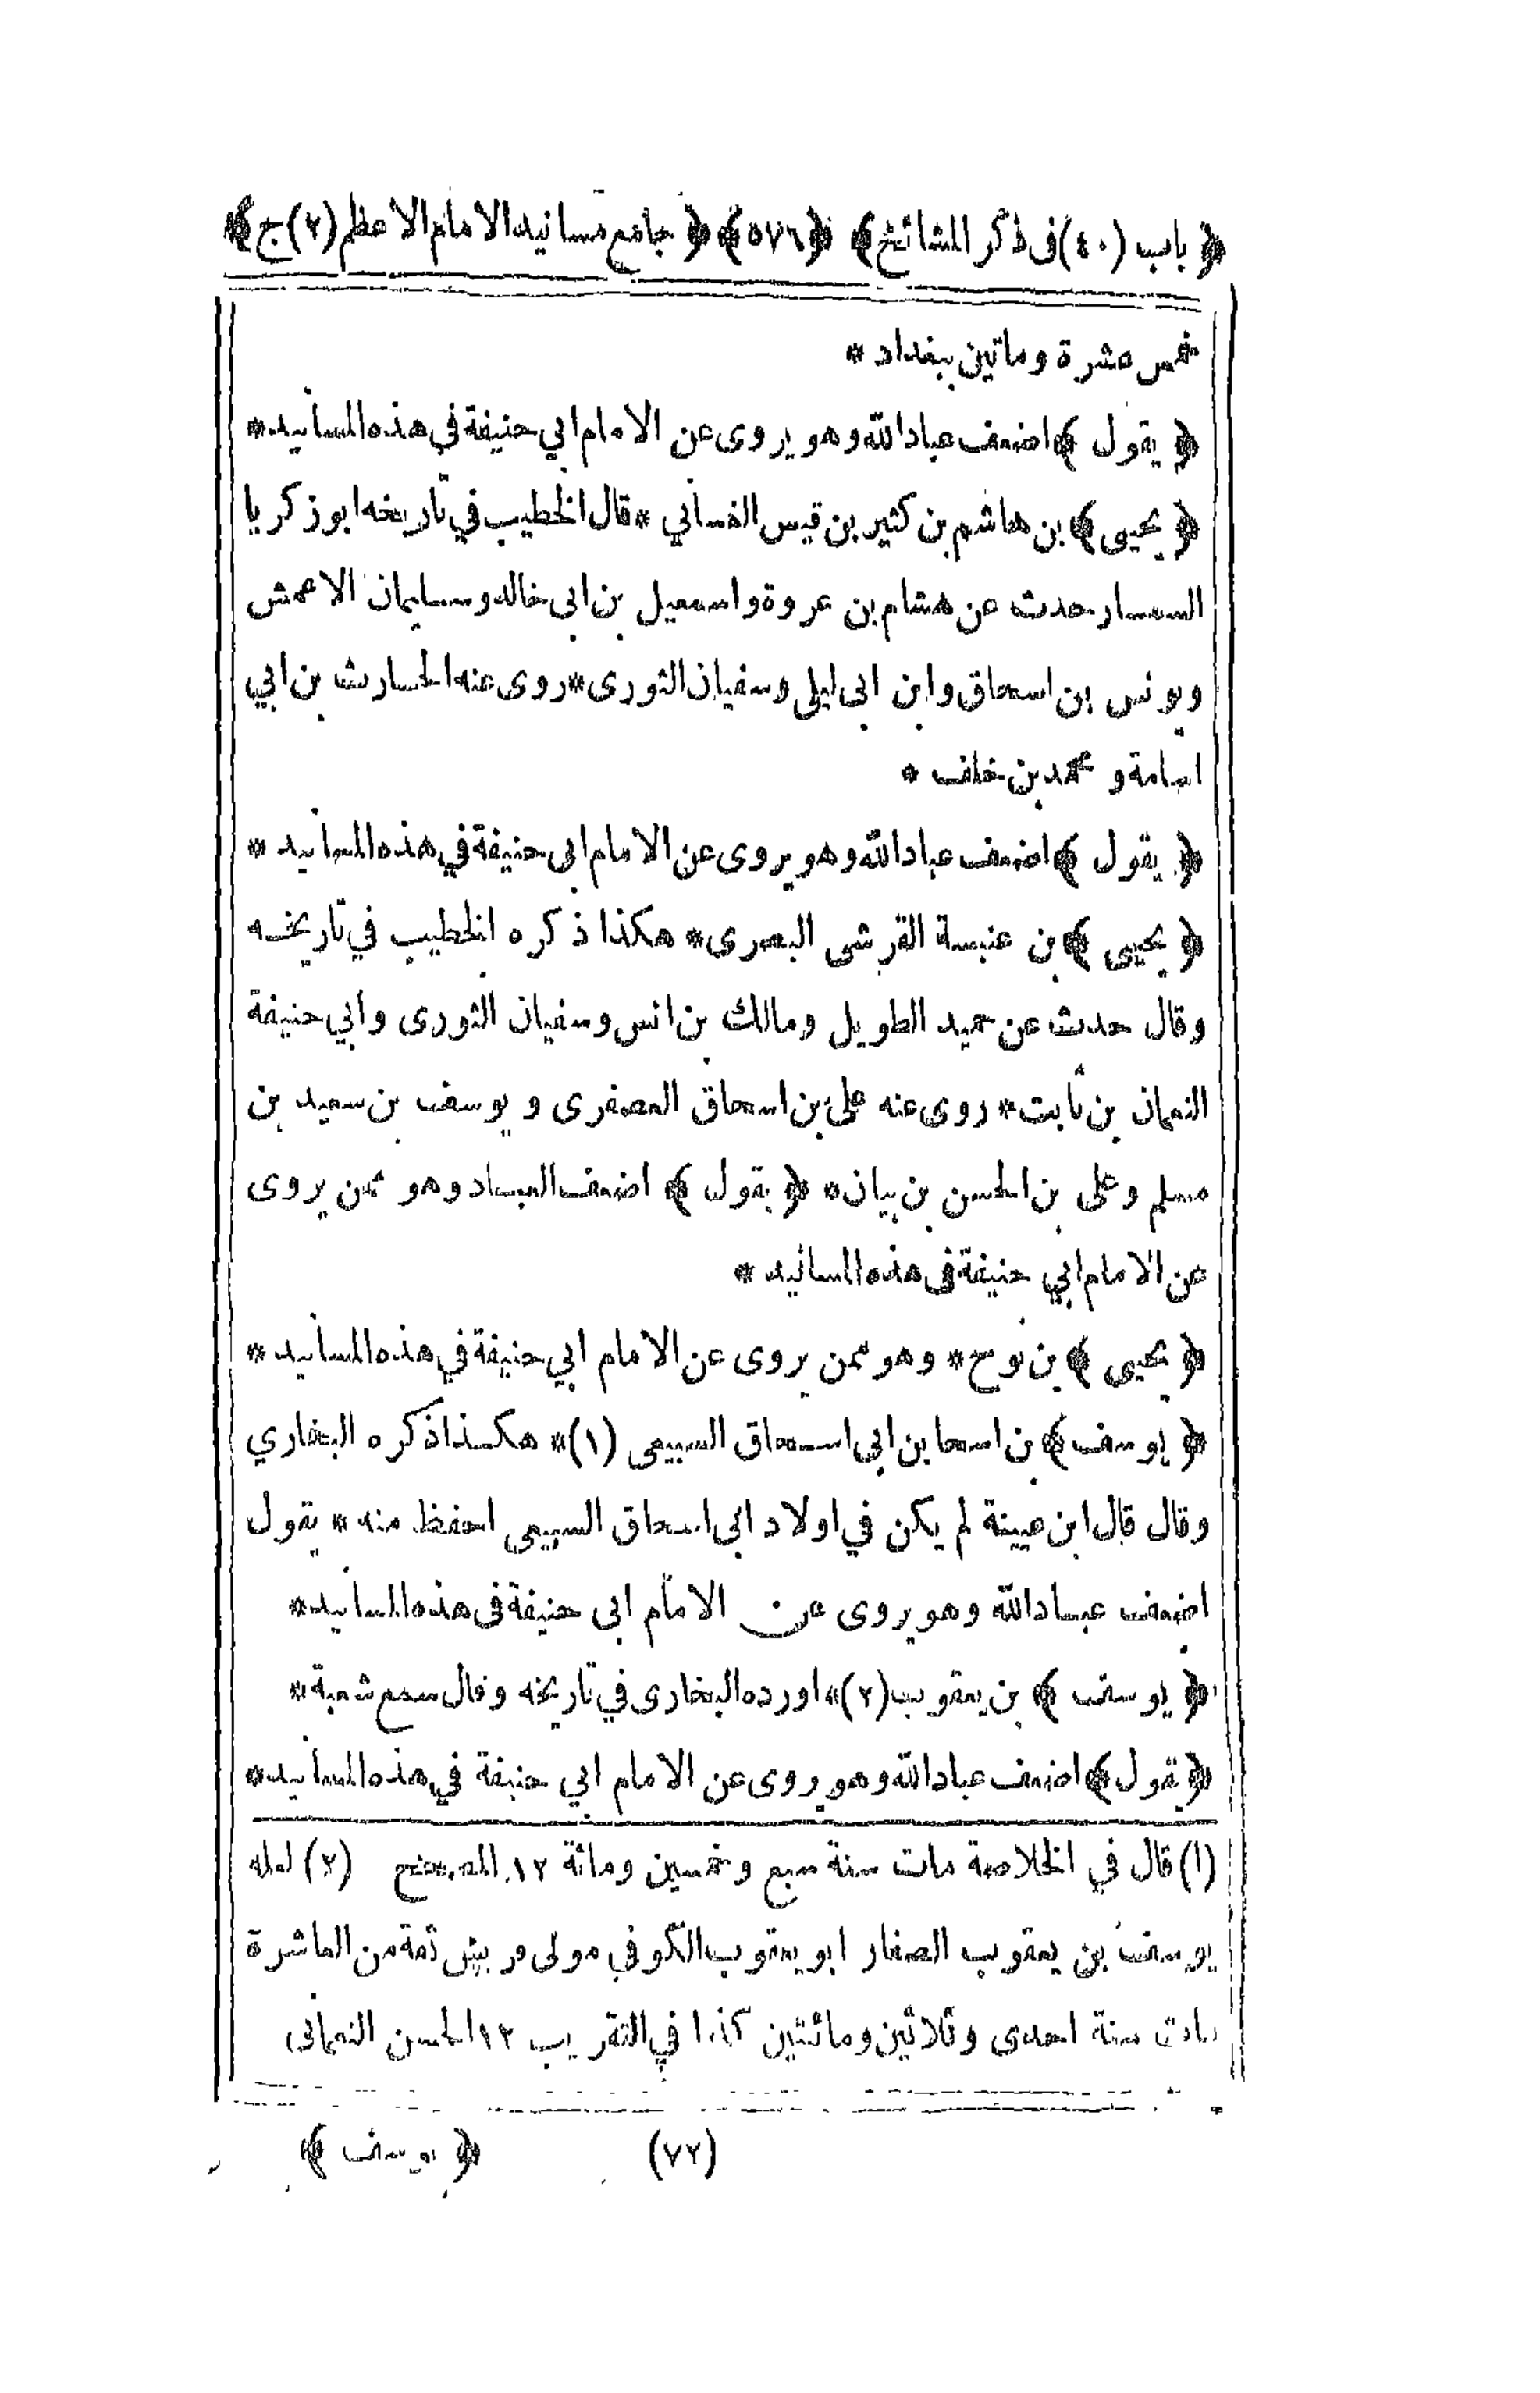 ﴿ باب (٤٠) فى ذكر المشائخ ﴾ ﴿ ٥٧٦ ﴾ ﴿ جامع مسانيد الامام الاعظم (٢) ج ﴾
خمس عشرة وماتين ببغداد *
﴿ يقول ﴾ اضعف عباد الله وهو يروى عن الامام ابي حنيفة في هذه المسانيد *
﴿ يحيى ﴾ بن هاشم بن كثير بن قيس الغساني * قال الخطيب في تاريخه ابو زكريا
السمسار حدث عن هشام بن عروة واسمعيل بن ابى خالد وسليمان الاعمش
ويونس بن اسحاق وابن ابى ليلى وسفيان الثورى * روى عنه الحارث بن ابي
اسامة و محمد بن خلف *
﴿ يقول ﴾ اضعف عباد الله وهو يروى عن الامام ابى حنيفة في هذه المسانيد *
﴿ يحيى ﴾ بن عنبسة القرشى البصرى * هكذا ذكره الخطيب في تاريخه
وقال حدث عن حميد الطويل ومالك بن انس وسفيان الثورى وابي حنيفة
النعمان بن ثابت * روى عنه على بن اسحاق العصفرى و يوسف بن سعيد بن
مسلم وعلى بن الحسن بن بيان * ﴿ يقول ﴾ اضعف العباد وهو ممن يروى
عن الامام ابي حنيفة فى هذه المسانيد *
﴿ يحيى ﴾ بن نوح * وهو ممن يروى عن الامام ابي حنيفة في هذه المسانيد *
﴿ يوسف ﴾ بن اسحا بن ابى اسحاق السبيعى (١) * هكذا ذكره البخاري
وقال قال ابن عيينة لم يكن في اولاد ابى اسحاق السبيعى احفظ منه * يقول
اضعف عباد الله وهو يروى عن الامام ابى حنيفة فى هذه المسانيد *
﴿ يوسف ﴾ بن يعقوب (٢) * اورده البخارى في تاريخه وقال سمع شعبة *
﴿ يقول ﴾ اضعف عباد الله وهو يروى عن الامام ابي حنيفة في هذه المسانيد *
(١) قال في الخلاصة مات سنة سبع وخمسين ومائة ١٢ المصحح (٢) لعله
يوسف بن يعقوب الصفار ابو يعقوب الكوفي مولى قريش ثقة من العاشرة
مات سنة احدى وثلاثين ومائتين كذا في التقريب ١٢ الحسن النعمانى
(٧٢) ﴿ يوسف ﴾